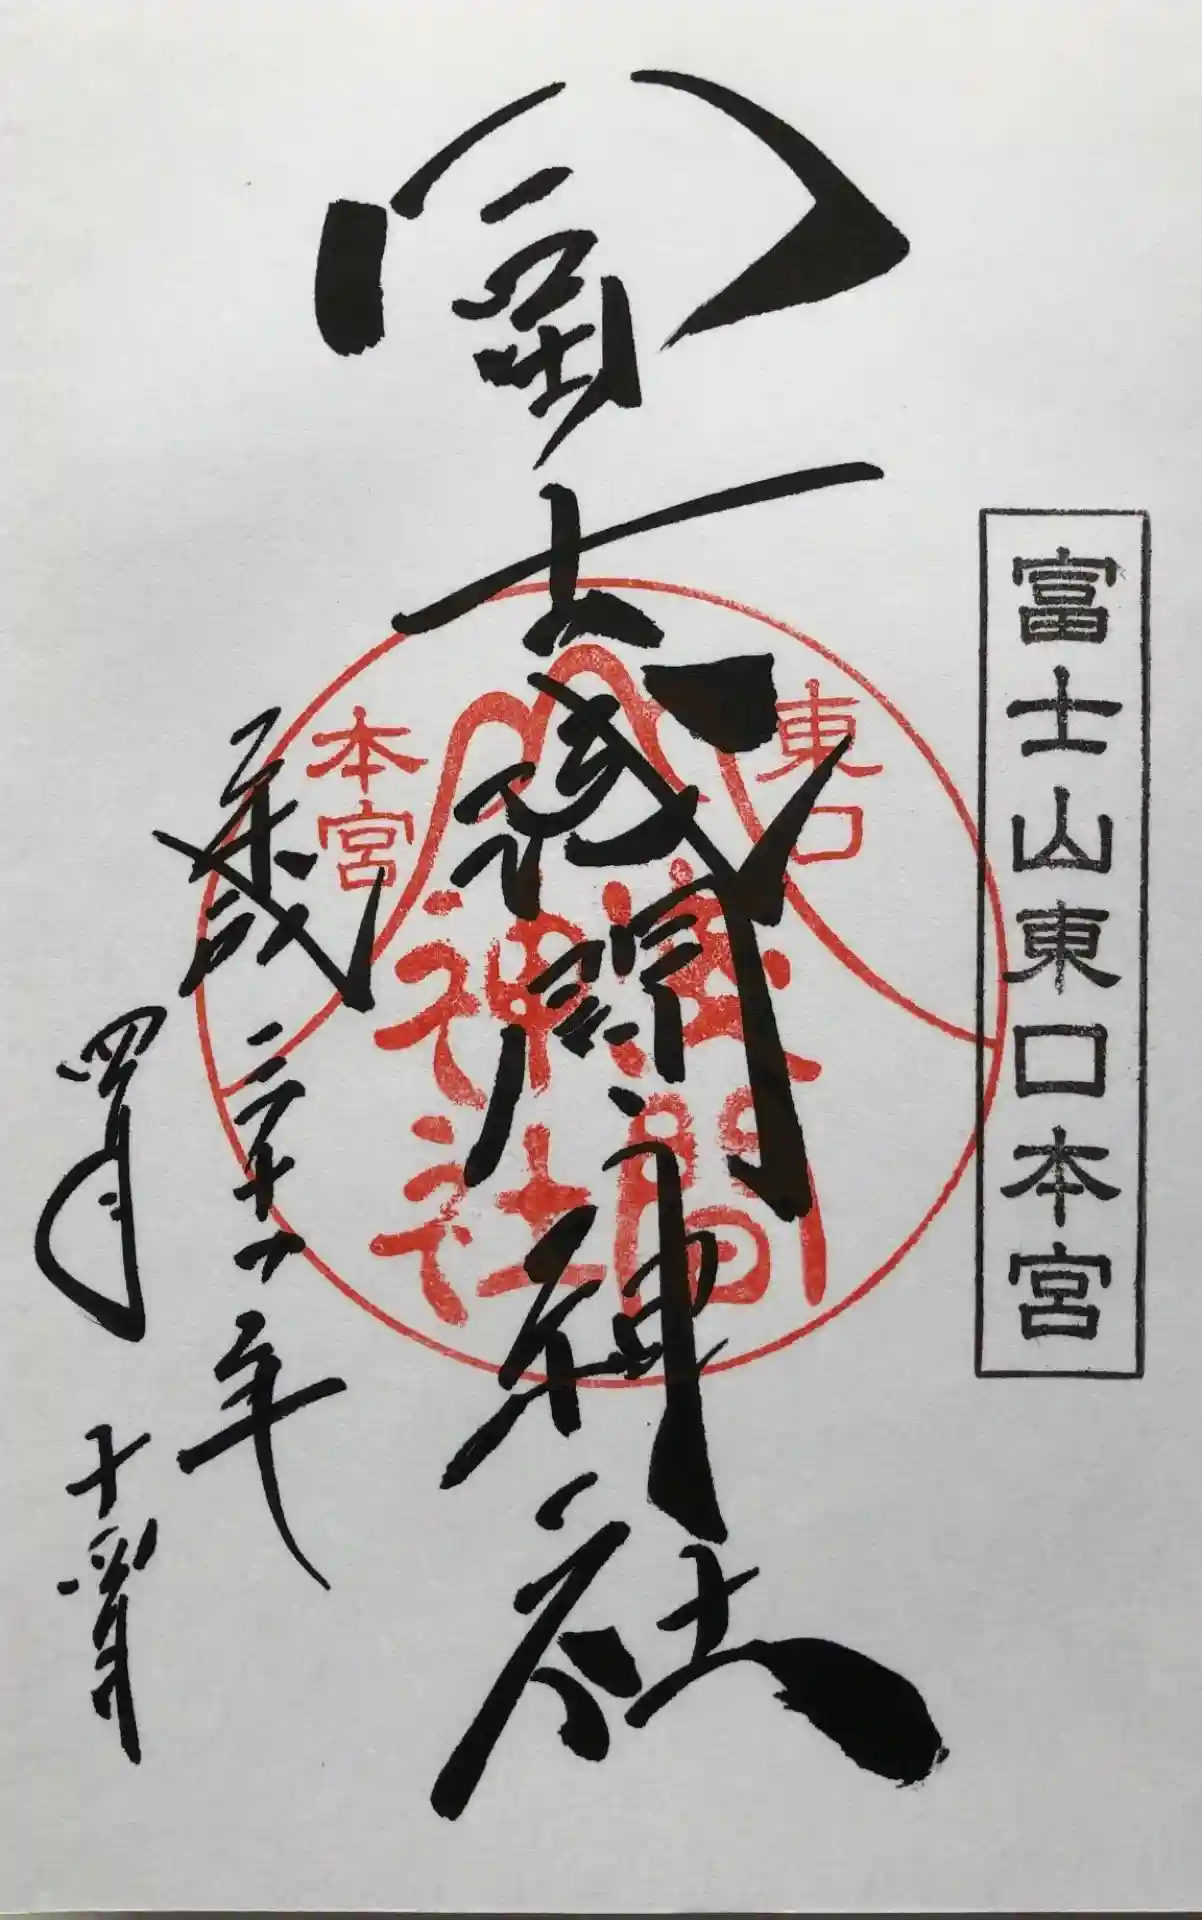 富士山東口本宮
冨士淺間神社
東口
本宮
淺間
神社
平成三十一年
四月